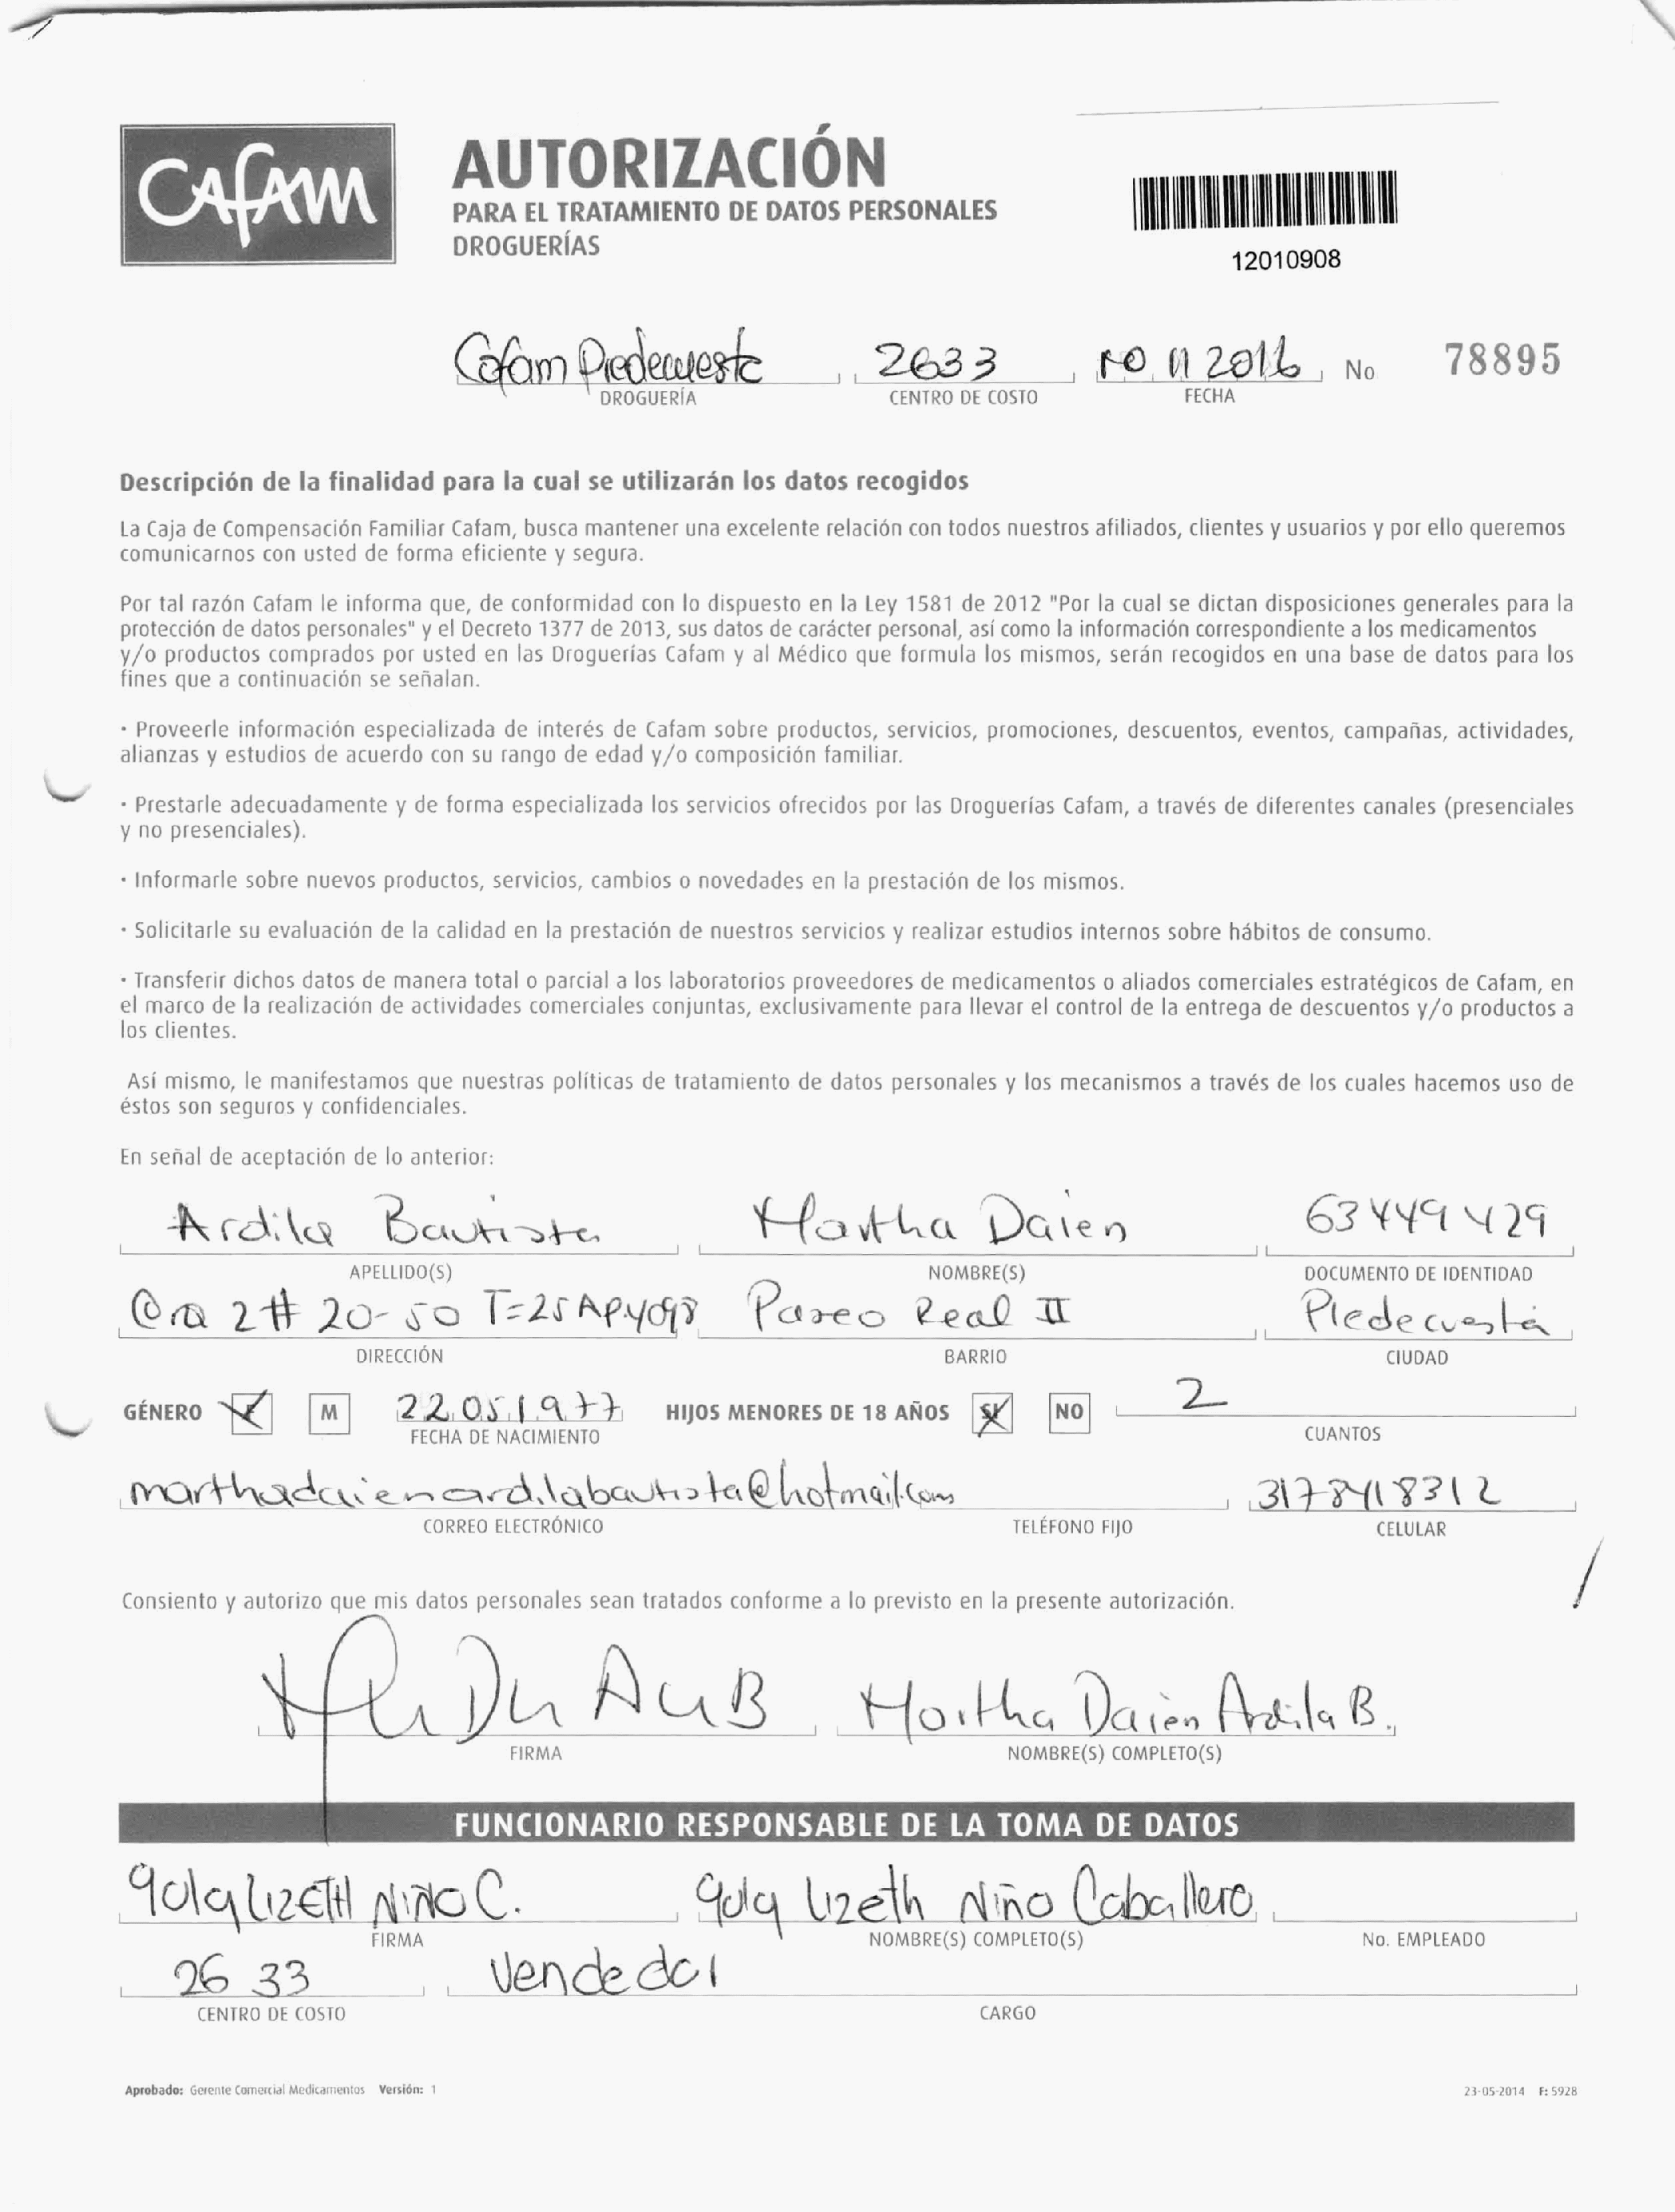 CAFAM
AUTORIZACIÓN
PARA EL TRATAMIENTO DE DATOS PERSONALES
DROGUERÍAS
12010908
Cafam Piedecuesta 2633 10 11 2016 No 78895
DROGUERÍA CENTRO DE COSTO FECHA
Descripción de la finalidad para la cual se utilizarán los datos recogidos
La Caja de Compensación Familiar Cafam, busca mantener una excelente relación con todos nuestros afiliados, clientes y usuarios y por ello queremos
comunicarnos con usted de forma eficiente y segura.
Por tal razón Cafam le informa que, de conformidad con lo dispuesto en la Ley 1581 de 2012 "Por la cual se dictan disposiciones generales para la
protección de datos personales" y el Decreto 1377 de 2013, sus datos de carácter personal, así como la información correspondiente a los medicamentos
y/o productos comprados por usted en las Droguerías Cafam y al Médico que formula los mismos, serán recogidos en una base de datos para los
fines que a continuación se señalan.
· Proveerle información especializada de interés de Cafam sobre productos, servicios, promociones, descuentos, eventos, campañas, actividades,
alianzas y estudios de acuerdo con su rango de edad y/o composición familiar.
· Prestarle adecuadamente y de forma especializada los servicios ofrecidos por las Droguerías Cafam, a través de diferentes canales (presenciales
y no presenciales).
· Informarle sobre nuevos productos, servicios, cambios o novedades en la prestación de los mismos.
· Solicitarle su evaluación de la calidad en la prestación de nuestros servicios y realizar estudios internos sobre hábitos de consumo.
· Transferir dichos datos de manera total o parcial a los laboratorios proveedores de medicamentos o aliados comerciales estratégicos de Cafam, en
el marco de la realización de actividades comerciales conjuntas, exclusivamente para llevar el control de la entrega de descuentos y/o productos a
los clientes.
Así mismo, le manifestamos que nuestras políticas de tratamiento de datos personales y los mecanismos a través de los cuales hacemos uso de
éstos son seguros y confidenciales.
En señal de aceptación de lo anterior:
Ardila Bautista Martha Daien 63449429
APELLIDO(S) NOMBRE(S) DOCUMENTO DE IDENTIDAD
Cra 2 # 20-50 T=25 Ap.4098 Paseo Real II Piedecuesta
DIRECCIÓN BARRIO CIUDAD
GÉNERO F M 22051977 HIJOS MENORES DE 18 AÑOS SI NO 2
FECHA DE NACIMIENTO CUANTOS
marthadaienardilabautista@hotmail.com 3178418312
CORREO ELECTRÓNICO TELÉFONO FIJO CELULAR
Consiento y autorizo que mis datos personales sean tratados conforme a lo previsto en la presente autorización.
Martha Daien Ardila B.
FIRMA NOMBRE(S) COMPLETO(S)
FUNCIONARIO RESPONSABLE DE LA TOMA DE DATOS
Yuly LIZETH NIÑO C. Yuly lizeth Niño Caballero
FIRMA NOMBRE(S) COMPLETO(S) No. EMPLEADO
2633 Vendedor
CENTRO DE COSTO CARGO
Aprobado: Gerente Comercial Medicamentos Versión: 1 23-05-2014 F: 5928